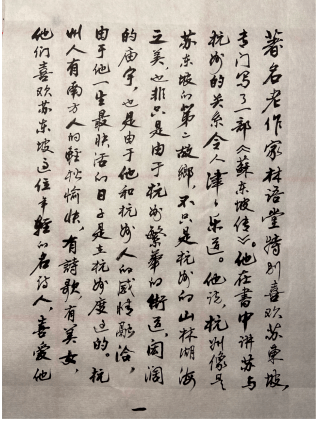 著名老作家林语堂特别喜欢苏东坡,
专门写了一部《苏东坡传》。他在书中讲苏与
杭州的关系令人津津乐道。他说,杭州像是
苏东坡的第二故鄉,不只是杭州的山林湖海
之美,也非只是由于杭州繁華的街道,闳阔
的庙宇,也是由于他和杭州人的感情融洽,
由于他一生最快活的日子是在杭州度过的。杭
州人有南方人的轻松愉快,有詩歌,有美女,
他们喜欢苏东坡这位年轻的名诗人,喜爱他
一